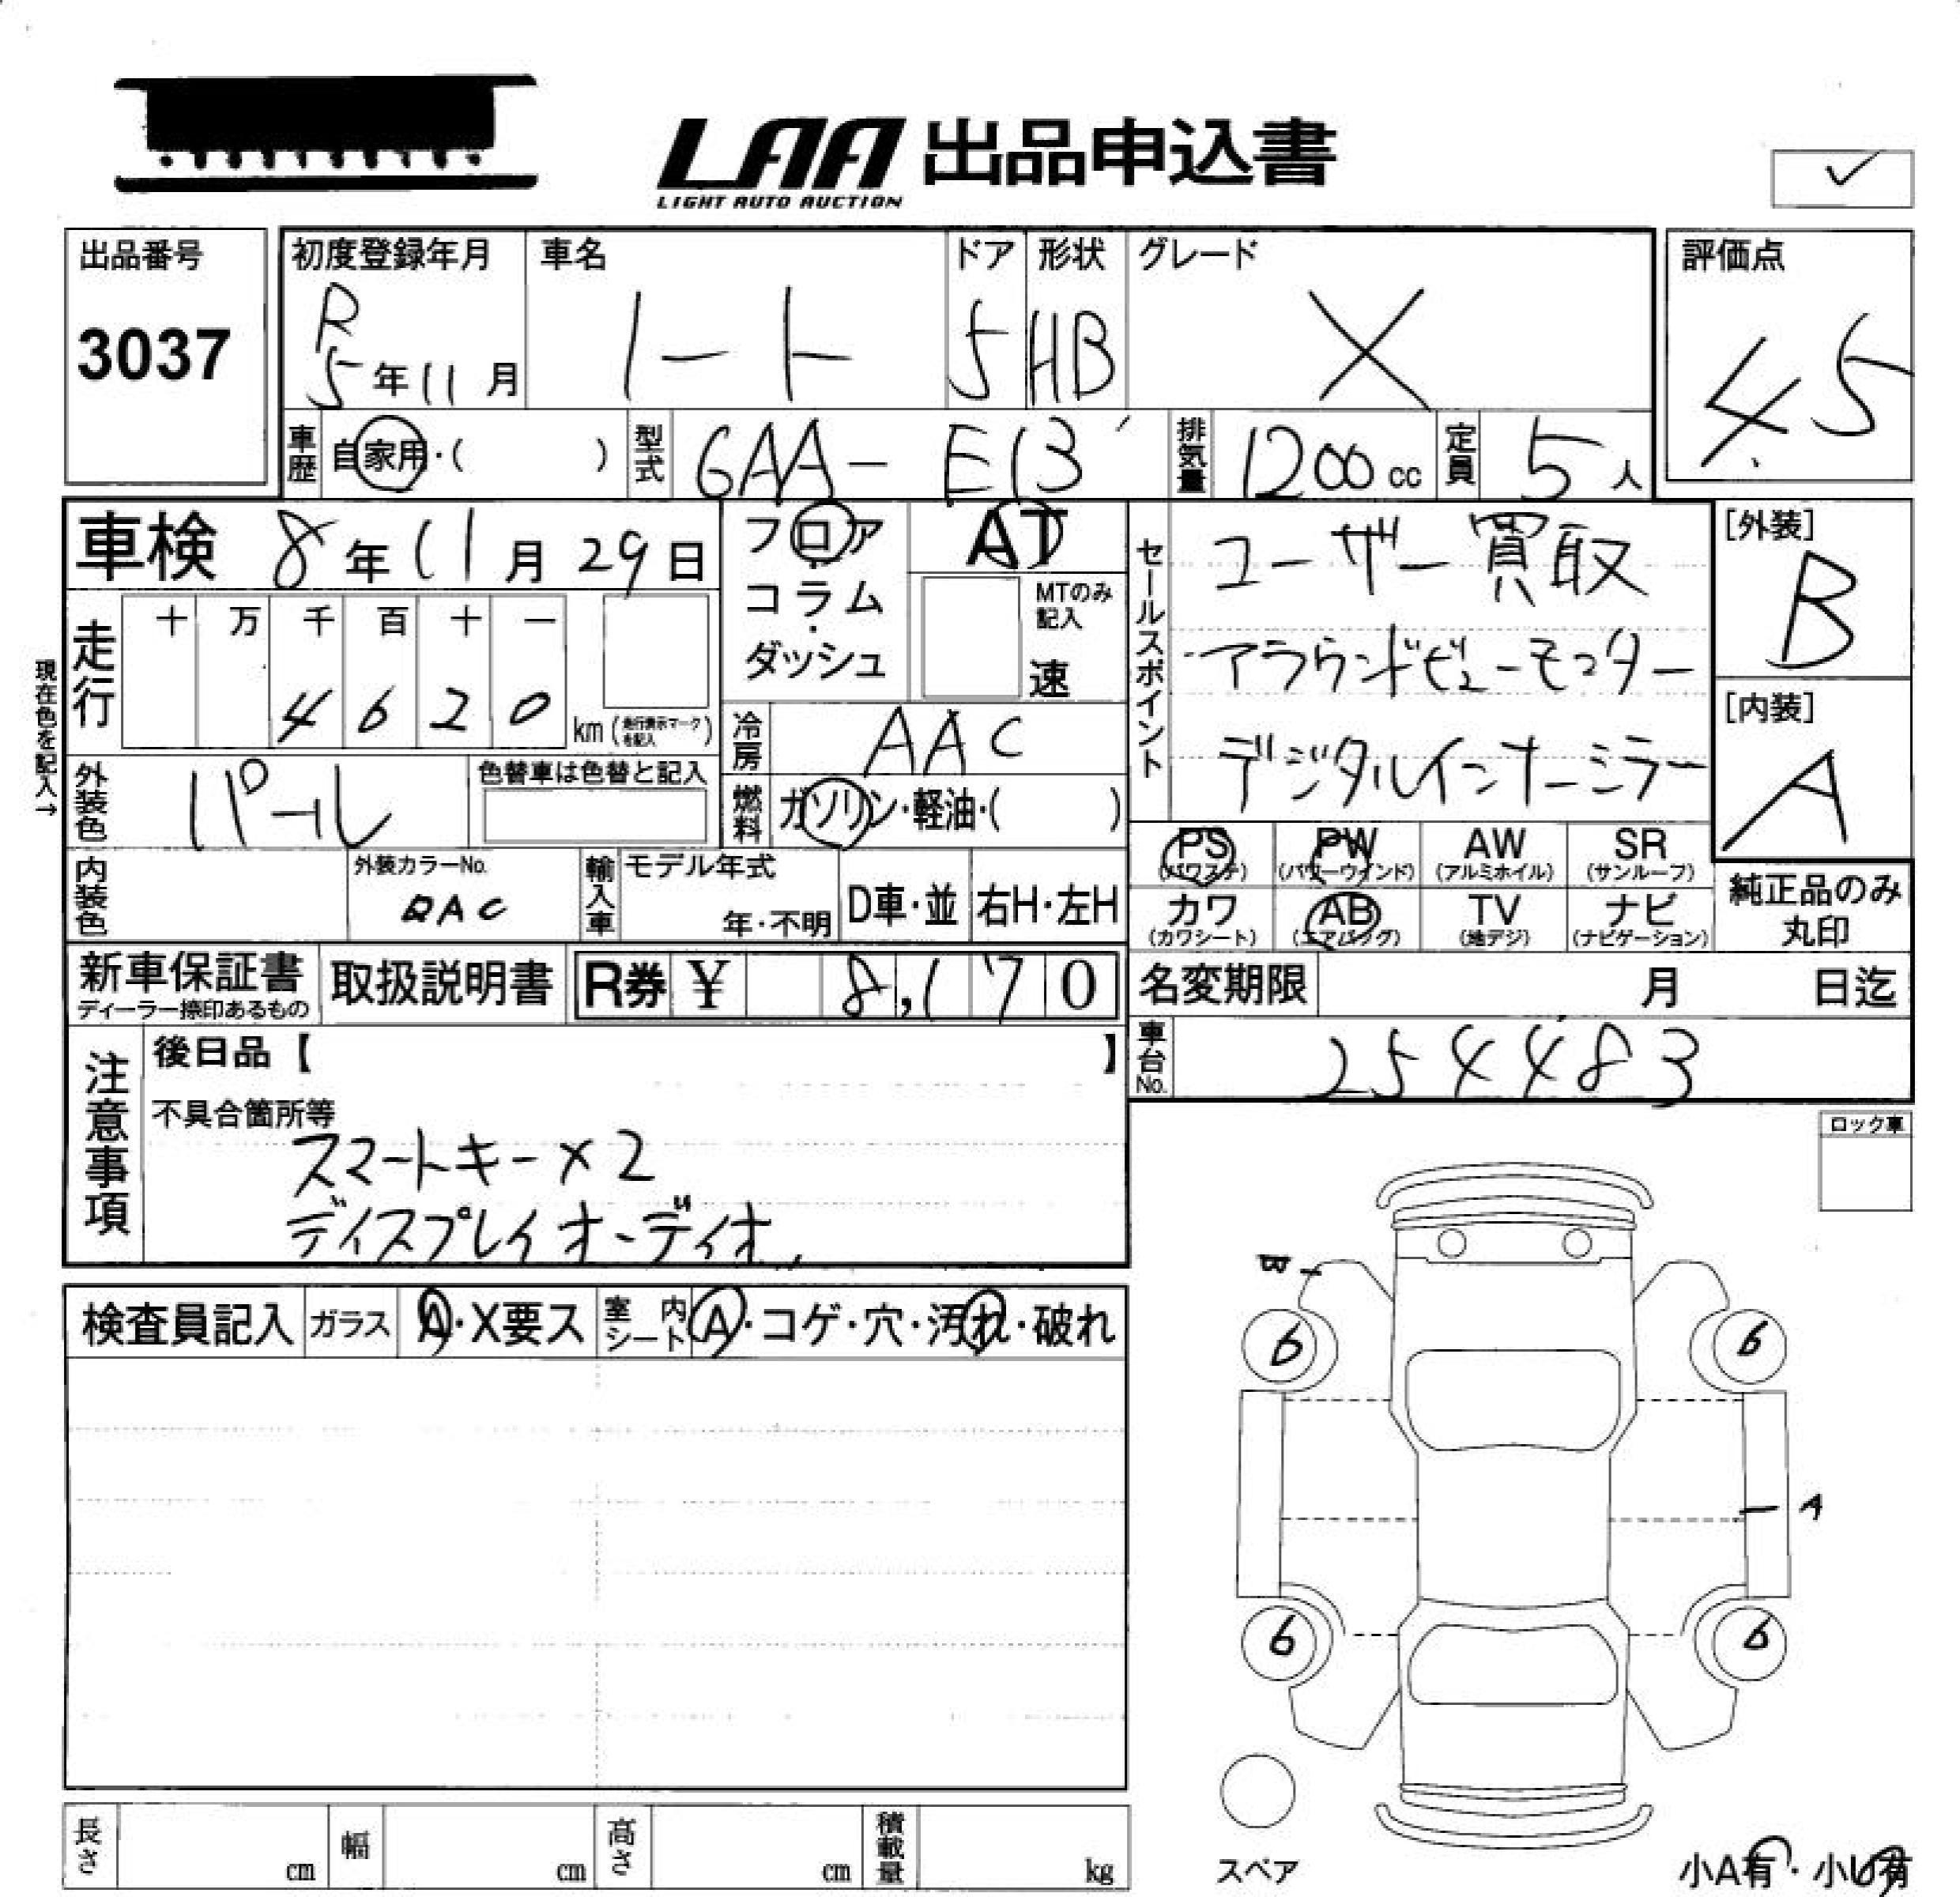 LAA 出品申込書
LIGHT AUTO AUCTION
✓
出品番号
3037
初度登録年月
R
5年11月
車名
ノート
ドア
5
形状
HB
グレード
X
評価点
4.5
車歴 自家用・( )
型式 6AA-E13
排気量 1200cc
定員 5人
車検 8年11月29日
現在色を記入→
走行
十 万 千 百 十 一
4 6 2 0
km (走行表示マークを記入)
フロア・コラム・ダッシュ
AT
MTのみ記入
速
冷房 AAC
燃料 ガソリン・軽油・( )
セールスポイント
ユーザー買取
アラウンドビューモニター
デジタルインナーミラー
[外装]
B
[内装]
A
外装色 パール
色替車は色替と記入
内装色
外装カラーNo.
QAC
輸入車
モデル年式
年・不明
D車・並
右H・左H
PS
(パワステ)
PW
(パワーウインド)
AW
(アルミホイル)
SR
(サンルーフ)
カワ
(カワシート)
AB
(エアバッグ)
TV
(地デジ)
ナビ
(ナビゲーション)
純正品のみ
丸印
新車保証書
ディーラー捺印あるもの
取扱説明書
R券 ¥ 8,170
名変期限 月 日迄
車台No. 254483
注意事項
後日品【 】
不具合箇所等
スマートキー×2
ディスプレイオーディオ
ロック車
検査員記入
ガラス
A・X要ス
室内シート
A・コゲ・穴・汚れ・破れ
A
6
6
6
6
スペア
小A有・小U有
長さ cm
幅 cm
高さ cm
積載量 kg